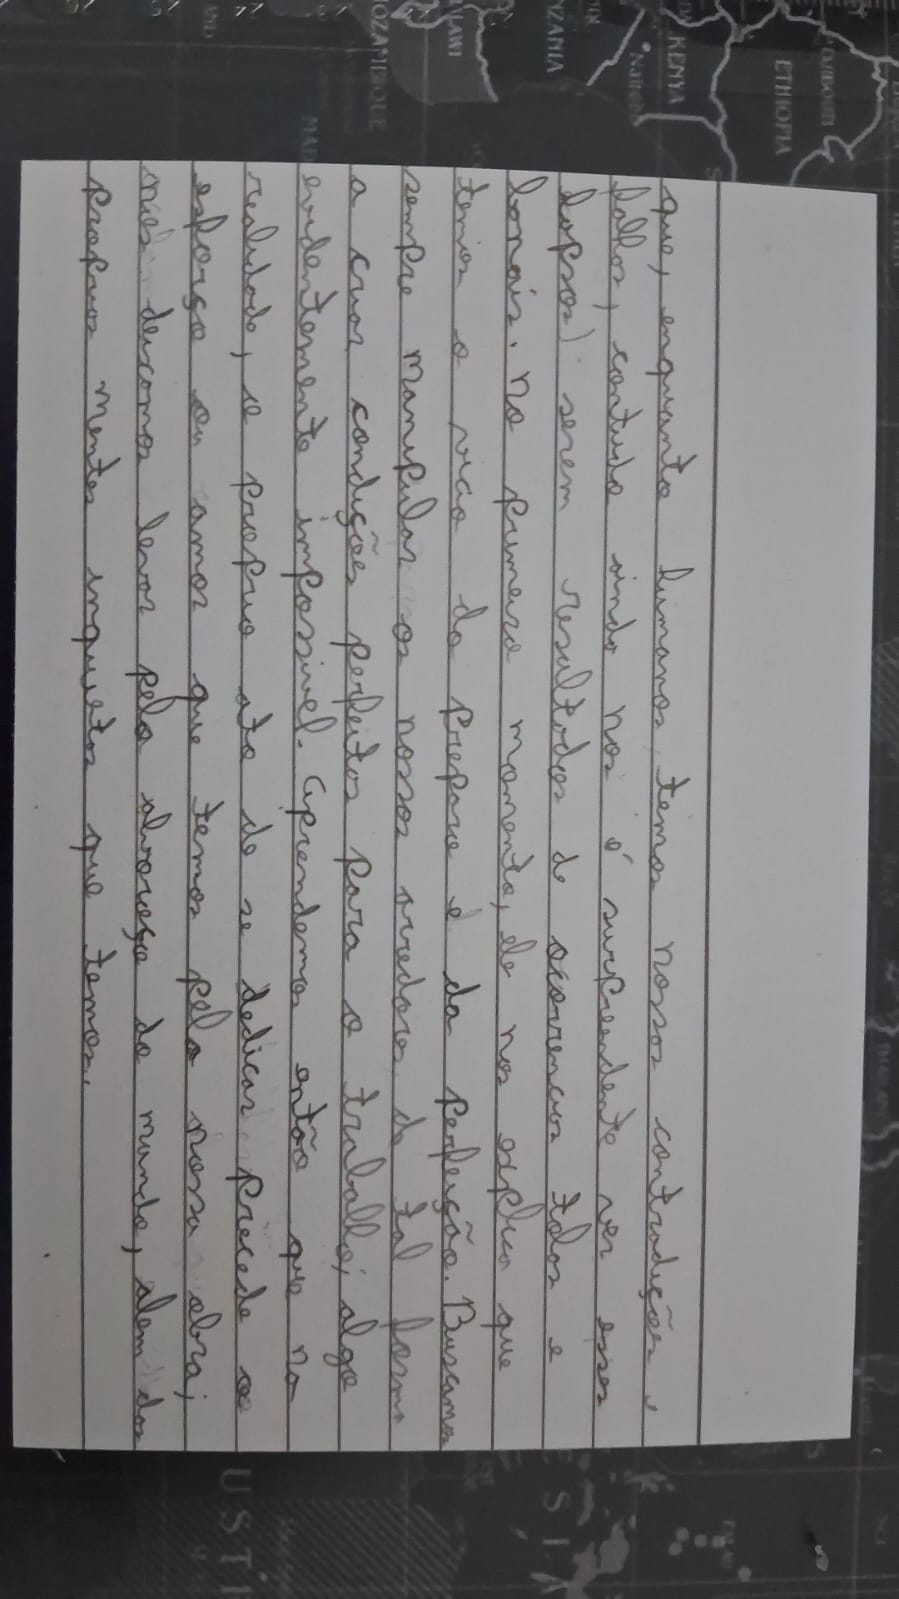 DJIBOUTI
ETHIOPIA
KENYA
Nairobi
NZANIA
LAWI
MOZAMBIQUE
MAD
THAILAND
PALAU
E S I A
U S T
que, enquanto humanos temos nossas contradições e
falhas, contudo ainda nos é surpreendente ver esses
lapsos) serem resultados de ocorrencias tolas e
banais. No primeiro momento, ele nos explica que
temos o vicio do preparo e da perfeição. Buscamos
sempre manipular os nossos arredores de tal forma
a criar condições perfeitas para o trabalho; algo
evidentemente impossivel. Aprendemos então que na
realidade, o proprio ato de se dedicar precede o
esforço ou amor que temos pela nossa obra;
nos deixamos levar pelo alvoroço do mundo, alem das
proprias mentes inquietas que temos.